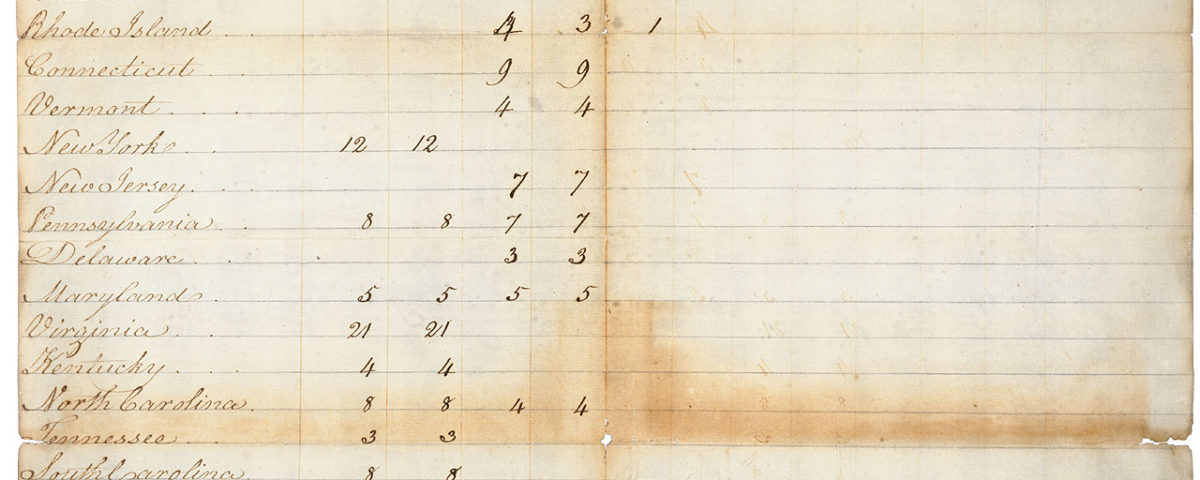 Rhode Island . . 4 3 1
Connecticut . . 9 9
Vermont . . . 4 4
New York . . 12 12
New Jersey . . . 7 7
Pennsylvania . . 8 8 7 7
Delaware . . 3 3
Maryland . 5 5 5 5
Virginia . . 21 21
Kentucky . . . 4 4
North Carolina . 8 8 4 4
Tennessee . . 3 3
South Carolina 8 8